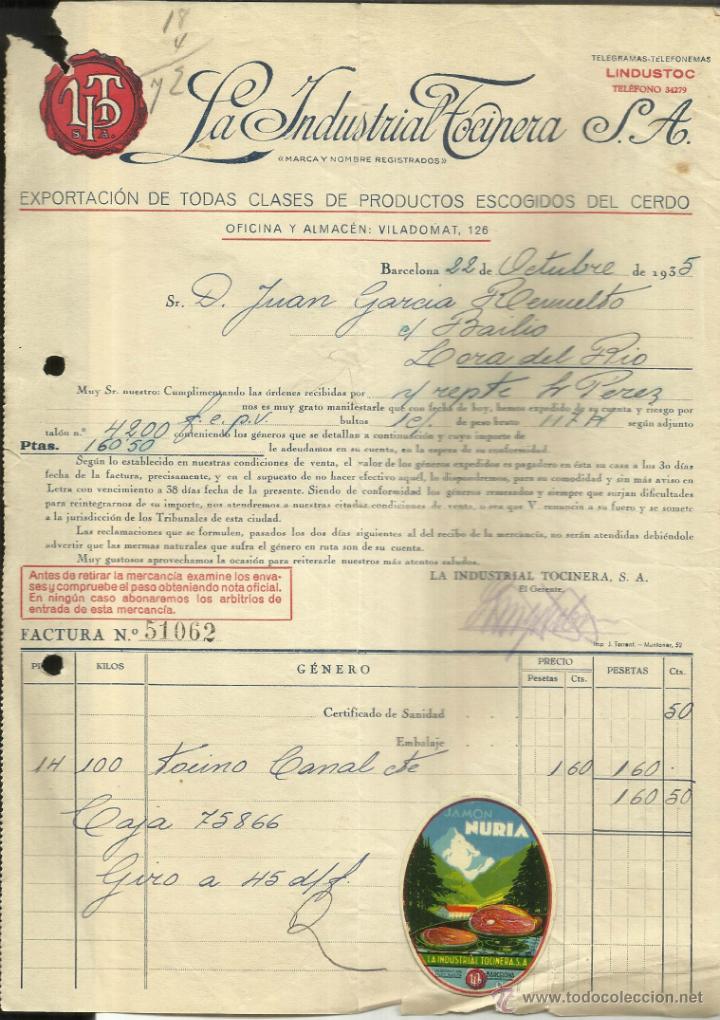 18
4
72
TELEGRAMAS-TELEFONEMAS
LINDUSTOC
TELÉFONO 34279
S.A.
La Industrial Tocinera S.A.
«MARCA Y NOMBRE REGISTRADOS»
EXPORTACIÓN DE TODAS CLASES DE PRODUCTOS ESCOGIDOS DEL CERDO
OFICINA Y ALMACÉN: VILADOMAT, 126
Barcelona 22 de Octubre de 1935
Sr. D. Juan Garcia
c/ Bailio
Lora del Rio
Muy Sr. nuestro: Cumplimentando las órdenes recibidas por n/ repte Sr Perez
nos es muy grato manifestarle que con fecha de hoy, hemos expedido de su cuenta y riesgo por
f.e.p.v. bultos 1 c/. de peso bruto 117 K según adjunto
talón n.º 4200 conteniendo los géneros que se detallan a continuación y cuyo importe de
Ptas. 160'50 le adeudamos en su cuenta, en la espera de su conformidad.
Según lo establecido en nuestras condiciones de venta, el valor de los géneros expedidos es pagadero en ésta su casa a los 30 días
fecha de la factura, precisamente, y en el supuesto de no hacer efectivo aquél, lo dispondremos, para su comodidad y sin más aviso en
Letra con vencimiento a 38 días fecha de la presente. Siendo de conformidad los géneros remesados y siempre que surjan dificultades
para reintegrarnos de su importe, nos atendremos a nuestras citadas condiciones de venta, o sea que V. renuncia a su fuero y se somete
a la jurisdicción de los Tribunales de esta ciudad.
Las reclamaciones que se formulen, pasados los dos días siguientes al del recibo de la mercancía, no serán atendidas debiéndole
advertir que las mermas naturales que sufra el género en ruta son de su cuenta.
Muy gustosos aprovechamos la ocasión para reiterarle nuestros más atentos saludos.
LA INDUSTRIAL TOCINERA, S. A.
El Gerente,
Antes de retirar la mercancía examine los enva-
ses y compruebe el peso obteniendo nota oficial.
En ningún caso abonaremos los arbitrios de
entrada de esta mercancía.
FACTURA N.º 51062
Imp. J. Torrent. – Muntaner, 52
KILOS GÉNERO PRECIO PESETAS Cts.
Pesetas Cts.
Certificado de Sanidad 50
Embalaje
14 100 Tocino Canal cte 1 60 160 .
160 50
Caja 75866
Giro a 45 d/f.
JAMÓN
NURIA
LA INDUSTRIAL TOCINERA, S.A.
BARCELONA
www.todocoleccion.net